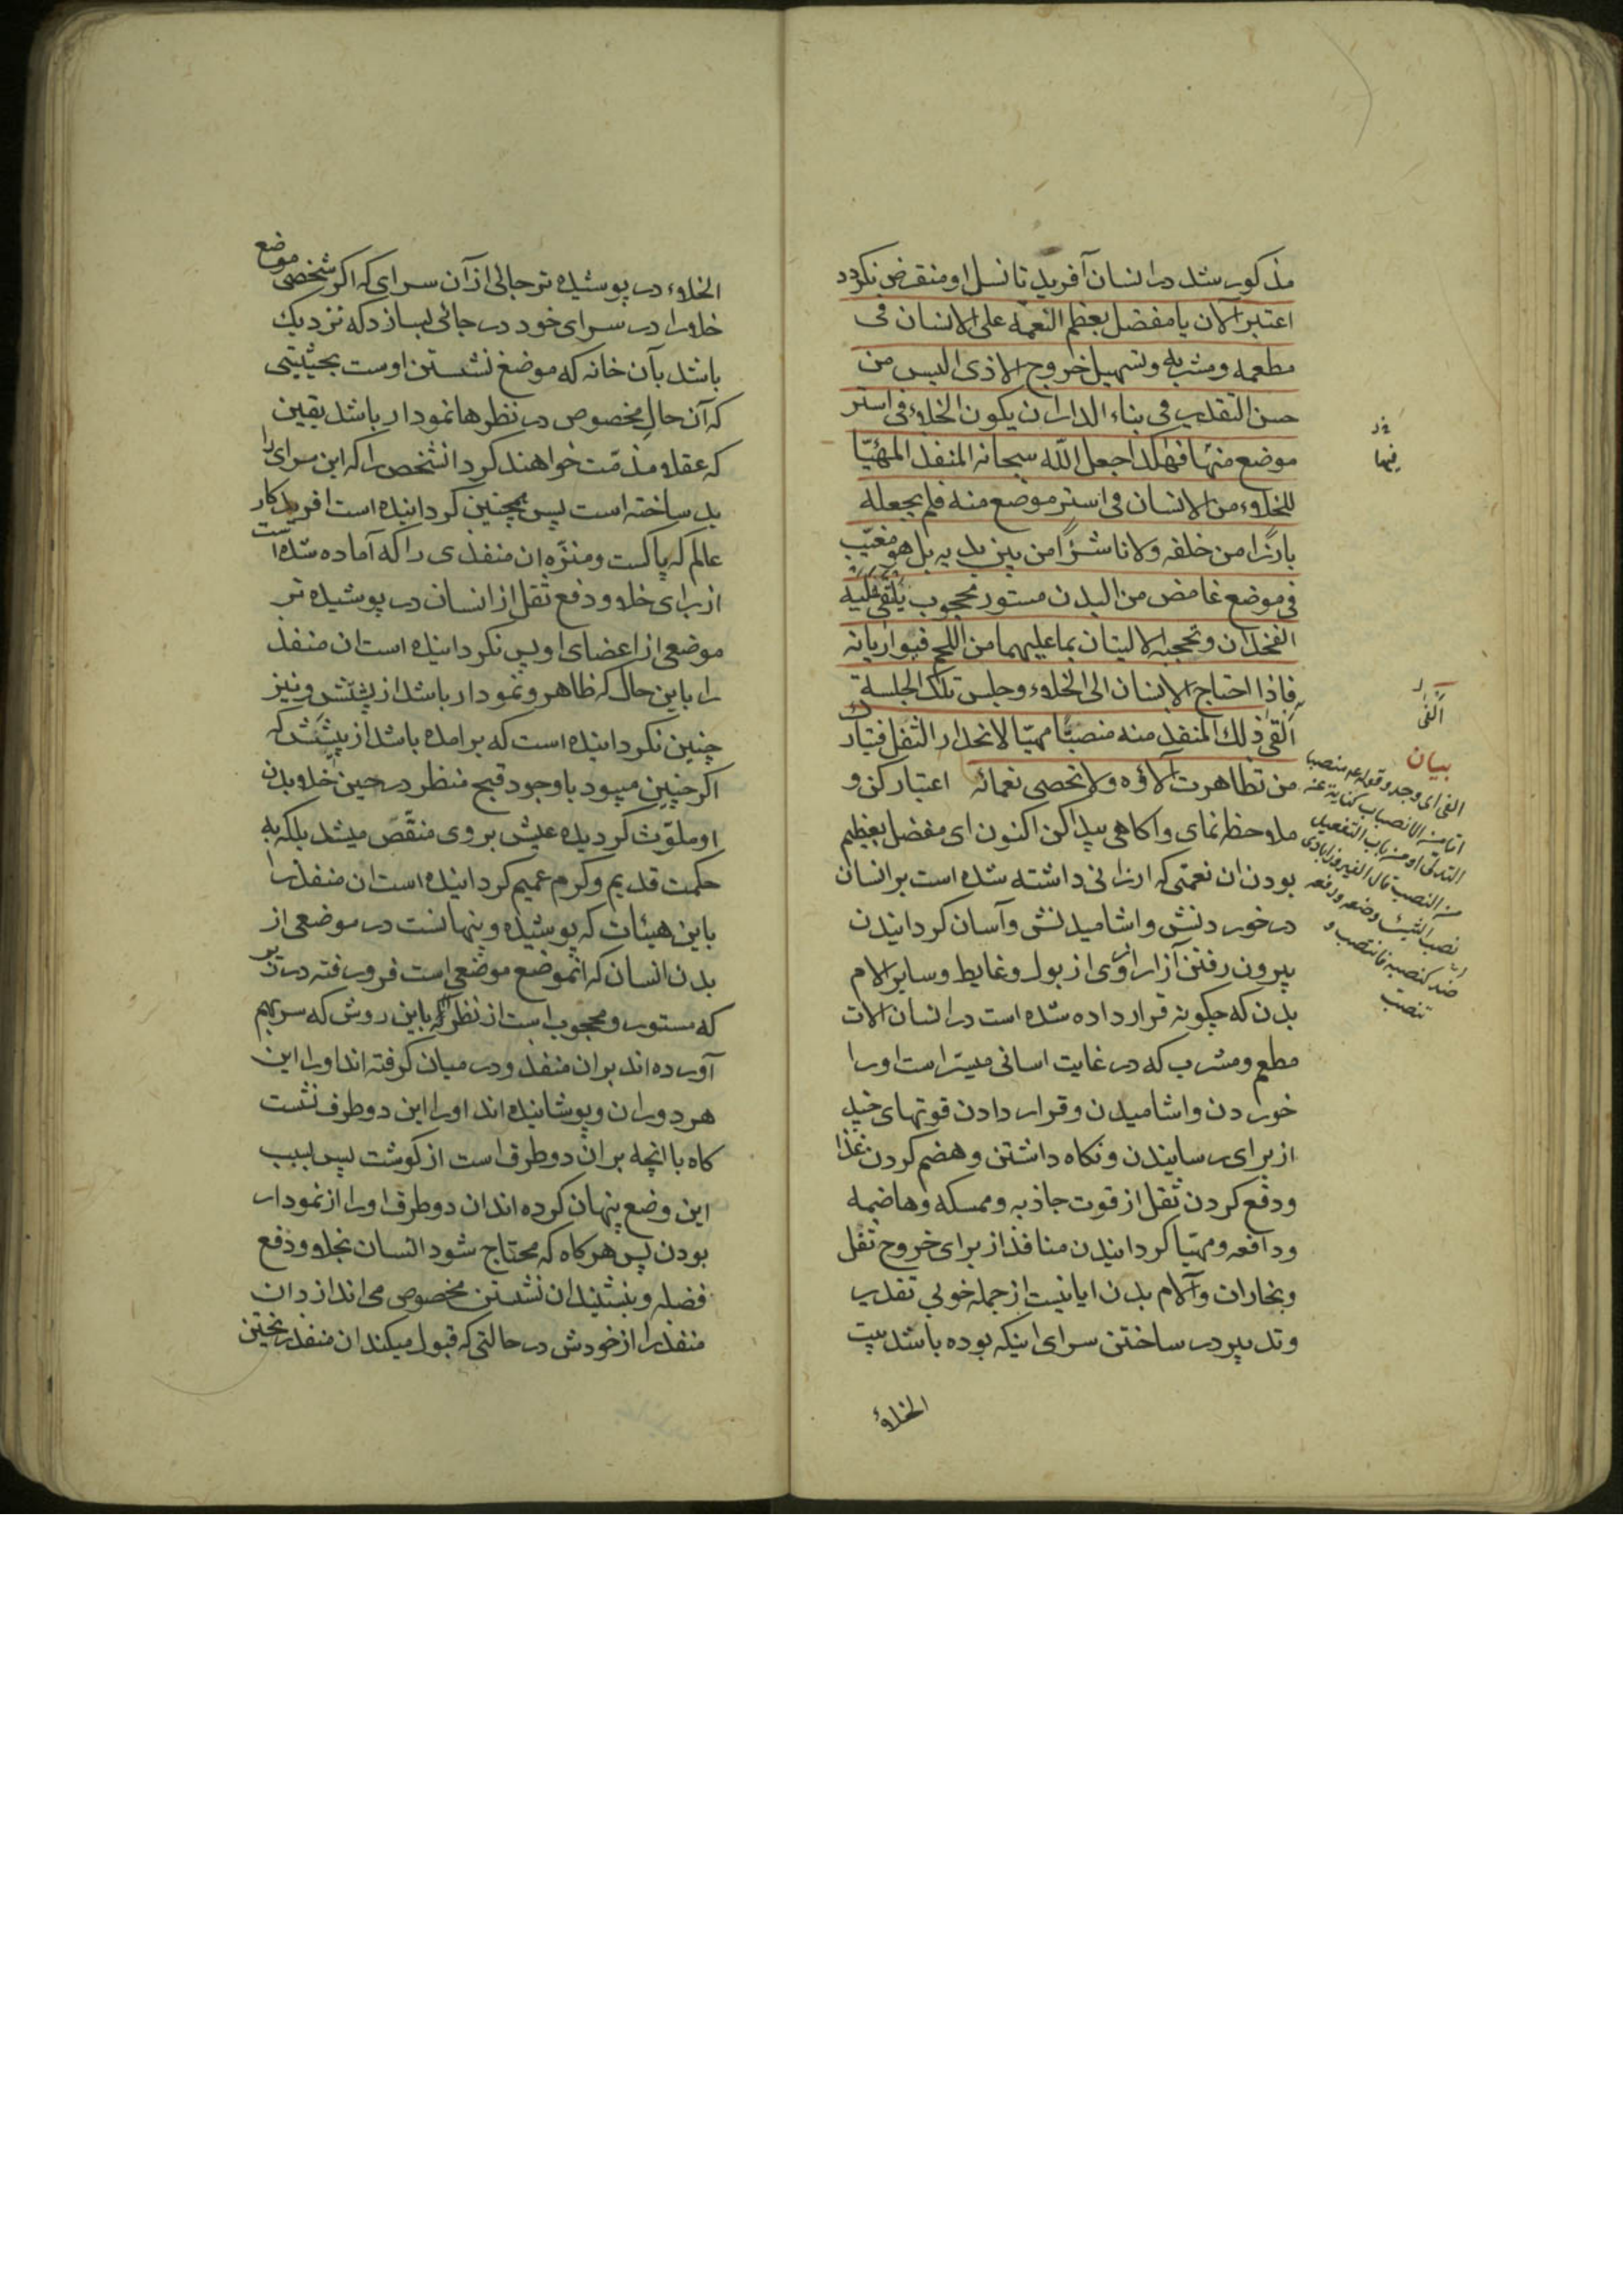 مذکور شد در انسان آفرید تا نسل او منقرض نکردد
اعتبر الان یا مفضل بعظم النعمة علی الانسان فی
مطعمه ومشربه وتسهیل خروج الاذی الیس من
حسن التقدیر فی بناء الدار ان یکون الخلاء فی استر
موضع منها فهکذا جعل الله سبحانه المنفذ المهیّا
للخلاء من الانسان فی استر موضع منه فلم یجعله
بارزا من خلفه ولا ناشزا من بین یدیه بل هو مغیّب
فی موضع غامض من البدن مستور محجوب یلتقی علیه
الفخذان وتحجبه الالیتان بما علیهما من اللحم فیواریانه
فاذا احتاج الانسان الی الخلاء وجلس تلک الجلسة
الفی ذلک المنفذ منه منصبّا مهیّا لانحدار الثفل فتبارک
من تظاهرت آلاؤه ولا تحصی نعمائه اعتبار کن و
ملاحظه نمای وآکاهی پیدا کن اکنون ای مفضل بعظیم
بودن ان نعمتی که ارزانی داشته شده است بر انسان
در خوردنش واشامیدنش وآسان کردانیدن
بیرون رفتن آزار از وی از بول وغایط وسایر الام
بدن که چکونه قرار داده شده است در انسان الات
مطعم ومشرب که در غایت اسانی میسّر است او را
خوردن واشامیدن وقرار دادن قوتهای چند
از برای رسانیدن ونکاه داشتن وهضم کردن غذا
ودفع کردن ثفل از قوت جاذبه وممسکه وهاضمه
ودافعه ومهیّا کردانیدن منافذ از برای خروج ثفل
وبخارات وآلام بدن ایا نیست از جمله خوبی تقدیر
وتدبیر در ساختن سرای اینکه بوده باشد بیت
الخلاء
فیها
الفی
بیان
الفی ای وجد وقوله منصبا
اما من الانصباب کنایة عن
التدلی او من باب التفعیل
من النصب قال الفیروزابادی
نصب الشیء وضعه ورفعه
ضد کنصبه فانتصب و
تنصب
الخلاء در پوشیده تر جائی از آن سرای که اکر شخصی موضع
خلا را در سرای خود در جائی بسازد که نزدیک
باشد بآن خانه که موضع نشستن اوست بحیثیتی
که آن حال مخصوص در نظرها نمودار باشد یقین
که عقلا مذمّت خواهند کرد آنشخص را که این سرای را
بد ساخته است پس همچنین کردانیده است افریدکار
عالم که پاکست ومنزّه ان منفذی را که آماده شده است
از برای خلا ودفع ثفل از انسان در پوشیده تر
موضعی از اعضای او پس نکردانیده است ان منفذ
را باین حال که ظاهر ونمودار باشد از پشتش ونیز
چنین نکردانیده است که برامده باشد از پیشش که
اکر چنین میبود با وجود قبح منظر در حین خلا بدن
او ملوّث کردیده عیش بر وی منقّص میشد بلکه به
حکمت قدیم وکرم عمیم کردانیده است ان منفذ را
باین هیئات که پوشیده وپنهانست در موضعی از
بدن انسان که انموضع موضعی است فرو رفته در تن
که مستور ومحجوب است از نظر باین روش که سر بهم
آورده اند بر ان منفذ ودر میان کرفته اند او را این
هر دو ران وپوشانیده اند او را این دو طرف نشست
کاه با انچه بر ان دو طرف است از کوشت پس بسبب
این وضع پنهان کرده اند ان دو طرف او را از نمودار
بودن پس هر کاه که محتاج شود انسان بخلا ودفع
فضله وبنشیند ان نشستن مخصوص می اندازد ان
منفذ را از خودش در حالتی که قبول میکند ان منفذ ریختن